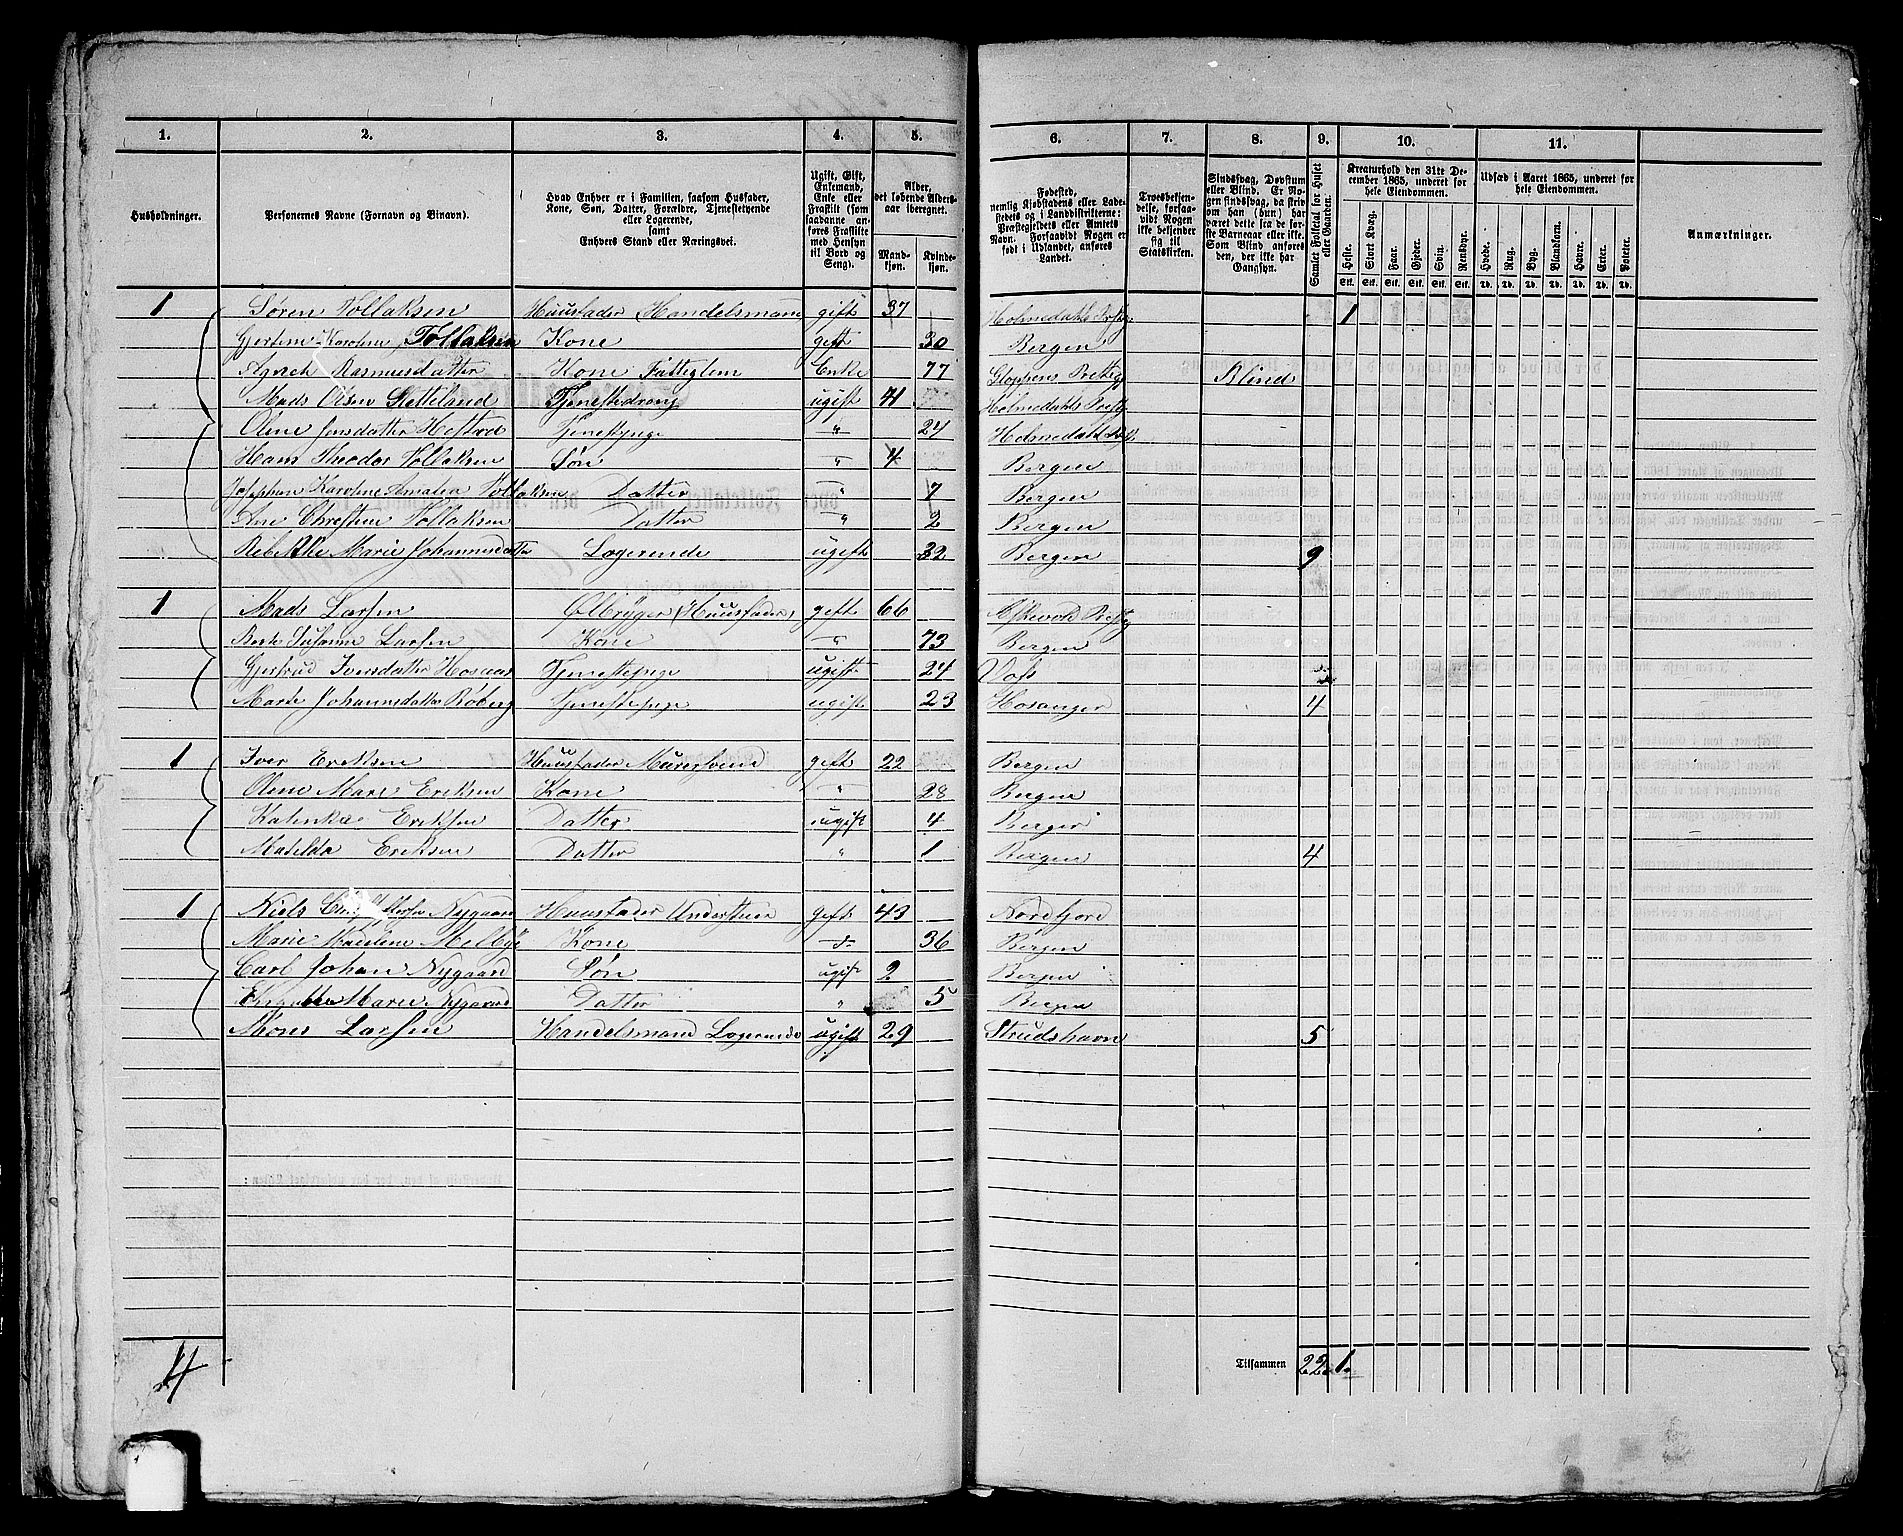 1. 2. 3. 4. 5. 6. 7. 8. 9. 10. 11.
Husholdninger.
Personernes Navne (Fornavn og Binavn).
Hvad Enhver er i Familien, saasom Husfader, Kone, Søn, Datter, Forældre, Tjenestetyende eller Logerende, samt Enhvers Stand eller Næringsvei.
Ugift, Gift, Enkemand, Enke eller Fraskilt (som saadanne anføres Fraskilte med Hensyn til Bord og Seng).
Alder, det løbende Aldersaar iberegnet.
Mandkjøn. Kvindekjøn.
Fødested, nemlig Kjøbstadens eller Ladestedets og i Landdistrikterne: Præstegjeldets eller Amtets Navn. Forsaavidt Nogen er født i Udlandet, anføres Landet.
Troesbekjendelse, forsaavidt Nogen ikke bekjender sig til Statskirken.
Sindssvag, Døvstum eller Blind. Er Nogen sindssvag, da skriv om han (hun) har været dette fra de første Barneaar eller ikke. Som Blind anføres den, der ikke har Gangsyn.
Samlet Folketal for Huset eller Gaarden.
Kreaturhold den 31te December 1865, underet for hele Eiendommen.
Heste. Stort Kvæg. Faar. Gjeder. Svin. Rensdyr.
Udsæd i Aaret 1865, underet for hele Eiendommen.
Hvede. Rug. Byg. Blandkorn. Havre. Erter. Poteter.
Anmærkninger.
1 Søren Tollaksen Huusfader Handelsmann gift 37 Holmedahls Præstg 1
Karoline Tollaksen Kone gift 30 Bergen
Rasmusdatter Kone Fattiglem Enke 77 Gloppens Blind
Mads Olsen Tjenestedreng ugift Holmedahls
Oline Jensdatter Hestad Tjenestepige " 24 Holmedahls
Hans Theodor Tollaksen Søn " 4 Bergen
Karoline Amalia Tollaksen Datter " 7 Bergen
Ane Christine Tollaksen Datter " 2 Bergen
Rebekke Marie Johannesdatter Logerende ugift 32 Bergen 9
1 Mads Larsen Ølbrygger (Huusfader) gift 66
Susanna Larsen Kone " 73 Bergen
Gjertrud Iversdatter Tjenestepige ugift 24 Vos
Johannesdatter Tjenestepige ugift 23 Hosanger 4
1 Iver Eriksen Huusfader Muursvend gift 22 Bergen
Oline Marie Eriksen Kone " 28 Bergen
Katinka Eriksen Datter ugift 4 Bergen
Matilda Eriksen Datter " 1 Bergen 4
1 Niels Nygaard Huusfader gift 43 Nordfjord
Marie Kone 36 Bergen
Carl Johan Nygaard Søn ugift 2 Bergen
Marie Nygaard Datter " 5 Bergen
Mons Larsen Handelsmand Logerende ugift 29 Strudshavn 5
4 Tilsammen 22 1